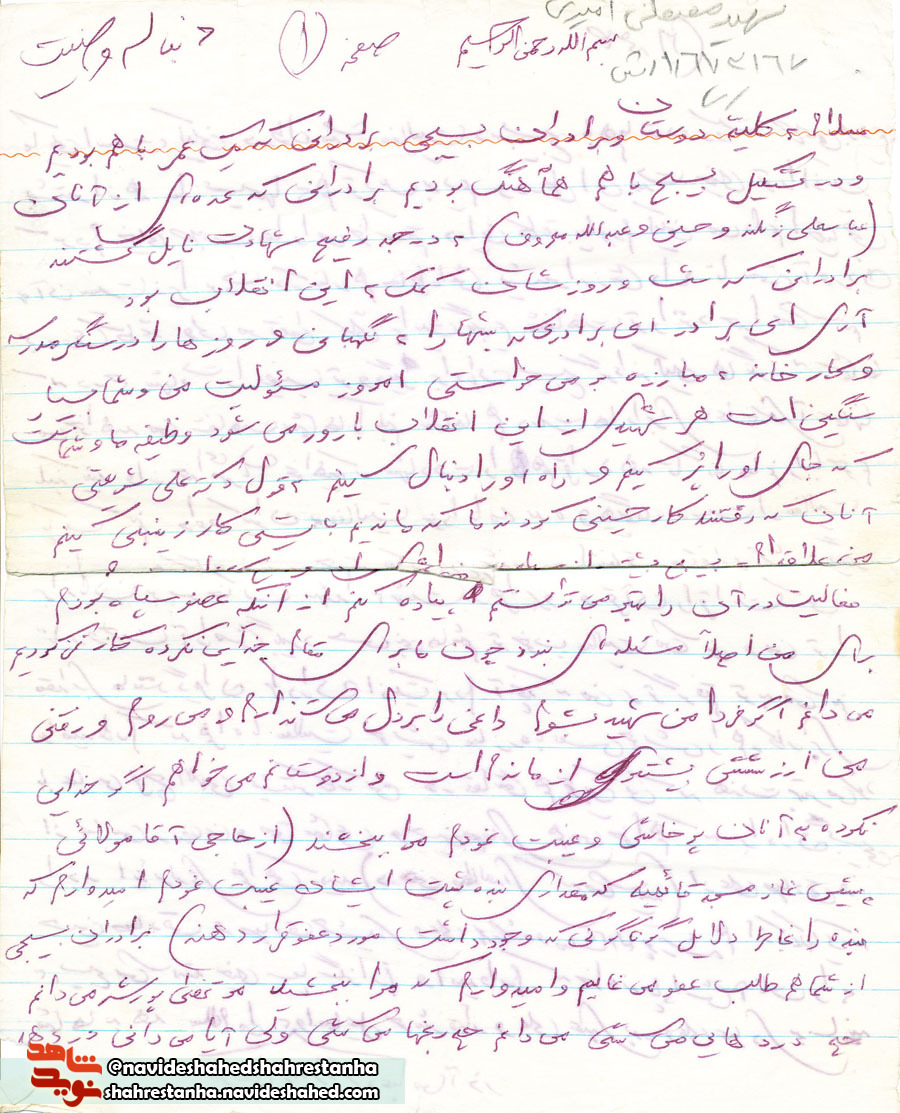 شهید صفعلی امیری
بسم الله رحمن الرحیم صفحه ۱ دنباله وصیت
سلام به کلیه دوستان و برادران بسیجی برادرانی که یک عمر با هم بودیم
و در تشکیل بسیج با هم همآهنگ بودیم برادرانی که عده‌ای از آنان
(عباسعلی زنگنه و حسین و عبدالله معروف) به درجه رفیع شهادت نایل گشتند
برادرانی که شب و روزشان کمک به این انقلاب بود
آری ای برادر ای برادری که شبها را به نگهبانی و روزها را در سنگر مدرسه
و کارخانه به مبارزه بر می خواستی امروز مسئولیت من و شما بسیار
سنگین است هر شهیدی از این انقلاب بارور می شود وظیفه ما و شماست
که جای او را پر کنیم و راه او را دنبال کنیم به قول دکتر علی شریعتی
آنان که رفتند کار حسینی کردند ما که ماندیم بایستی کار زینبی کنیم
من علاقه‌ام به بسیج بیشتر از سپاه بود
فعالیت در آن را بهتر می توانستم پیاده کنم از آنکه عضو سپاه بودم
برای من اصلاً مسئله‌ای نبود چون ما برای مقام خدایی نکرده کار نمی کردیم
می دانم اگر فردا من شهید بشوم داغی را بر دل می گذارم و می روم و رفتنی
من ارزشش بیشتر از ماندن است و از دوستانم می خواهم اگر خدایی
نکرده به آنان پرخاشی و غیبت نمودم مرا ببخشند (از حاجی آقا مولائی
پیش نماز مسجد قائمیه که مقداری بنده پشت ایشان غیبت نمودم امیدوارم که
بنده را بخاطر دلایل گوناگونی که وجود داشت مورد عفو قرار دهند) برادران بسیجی
از شما هم طالب عفو می نمایم و امیدوارم که مرا ببخشید مرتضی پورشه می دانم
چه درد هایی می کشی می دانم چه رنجها می کشی ولی آیا می دانی دردها
شاهد نوید
@navideshahedshahrestanha
shahrestanha.navideshahed.com